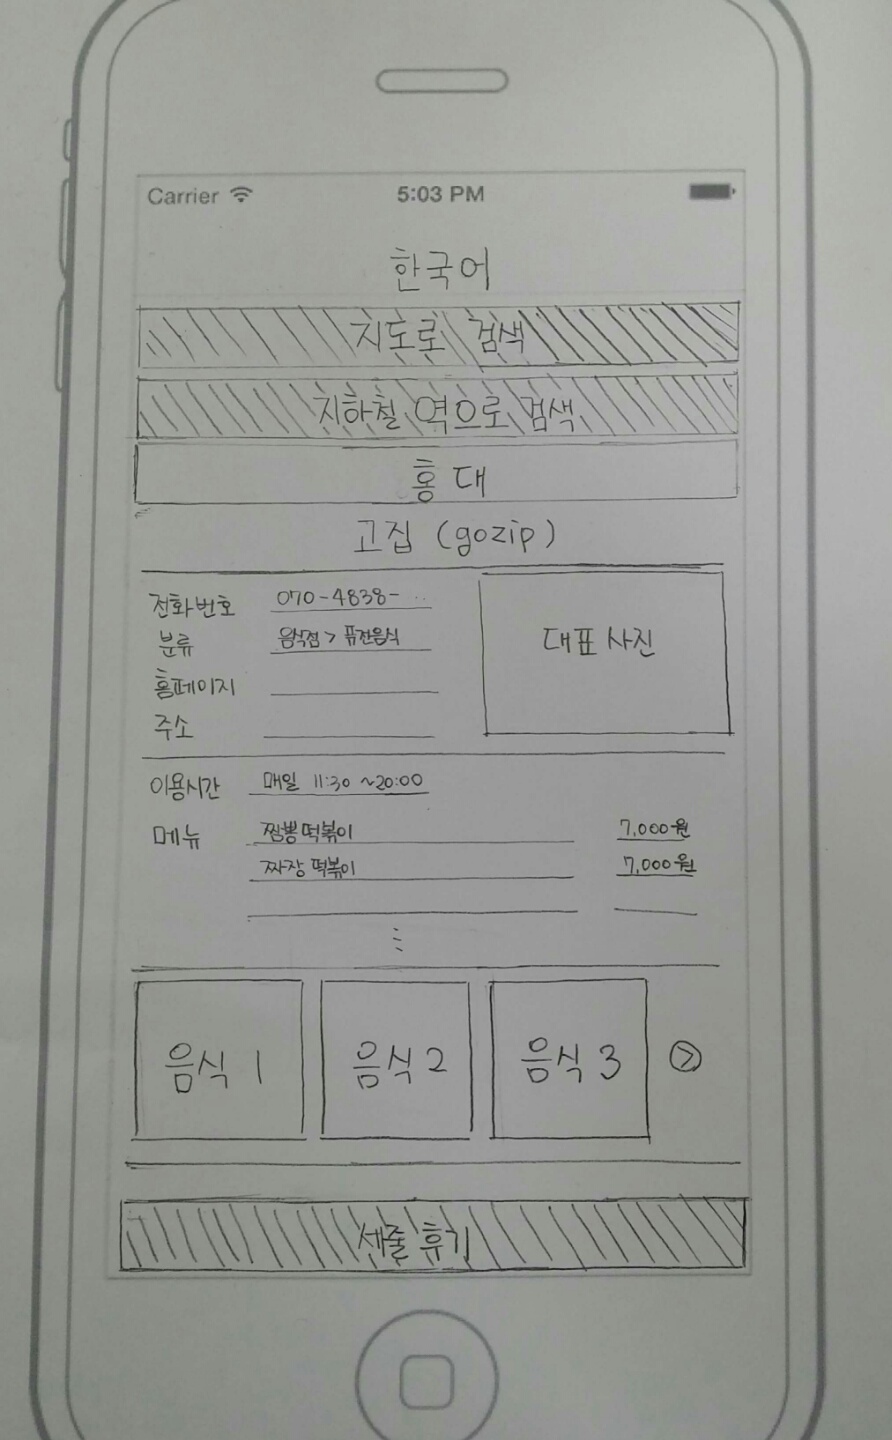 Carrier 5:03 PM
한국어
지도로 검색
지하철 역으로 검색
홍대
고집 (gozip)
전화번호 070-4838-...
분류 음식점 > 퓨전음식
홈페이지
주소
대표 사진
이용시간 매일 11:30 ~20:00
메뉴 짬뽕떡볶이 7,000원
짜장 떡볶이 7,000원
음식 1 음식 2 음식 3 >
세줄 후기